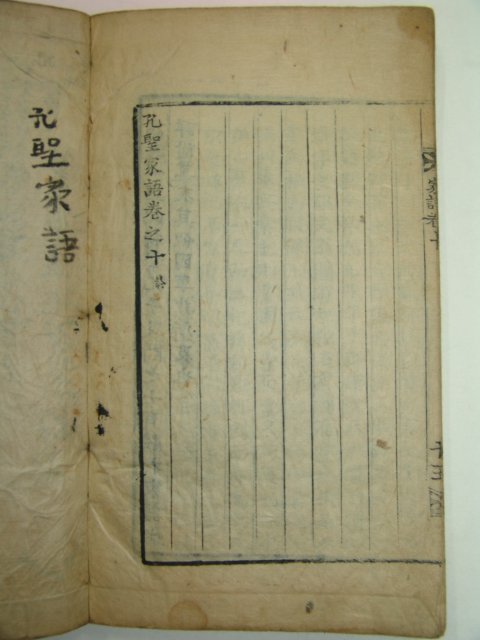 家語卷十
十三
孔聖家語卷之十終
孔聖家語